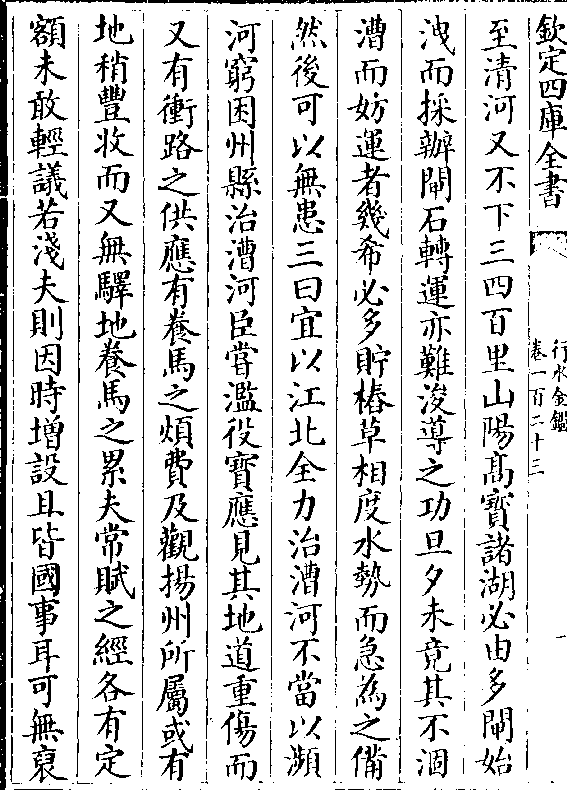 欽定四庫全書
行水金鑑
卷一百二十三
一
至清河又不下三四百里山陽髙寶諸湖必由多閘始
洩而採辦閘石轉運亦難浚導之功旦夕未竟其不涸
漕而妨運者幾希必多貯樁草相度水勢而急為之備
然後可以無患三曰宜以江北全力治漕河不當以瀕
河窮困州縣治漕河臣嘗濫役寳應見其地道重傷而
又有衝路之供應有養馬之煩費及觀揚州所屬或有
地稍豐收而又無驛地養馬之累夫常賦之經各有定
額未敢輕議若淺夫則因時増設且皆國事耳可無裒